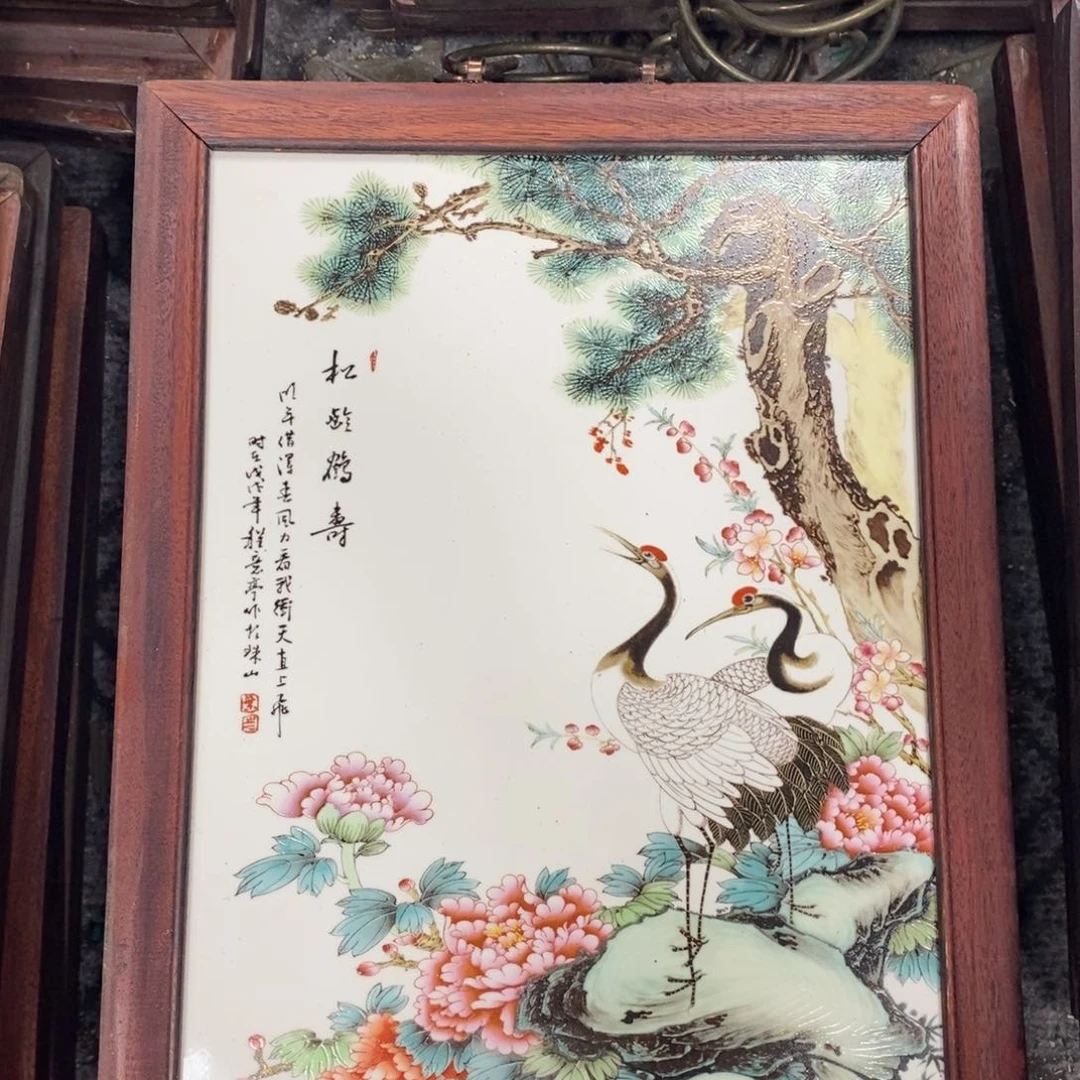 松龄鹤寿
明年借得东风力看我冲天直上飞
时在戊戌年程意亭作于珠山